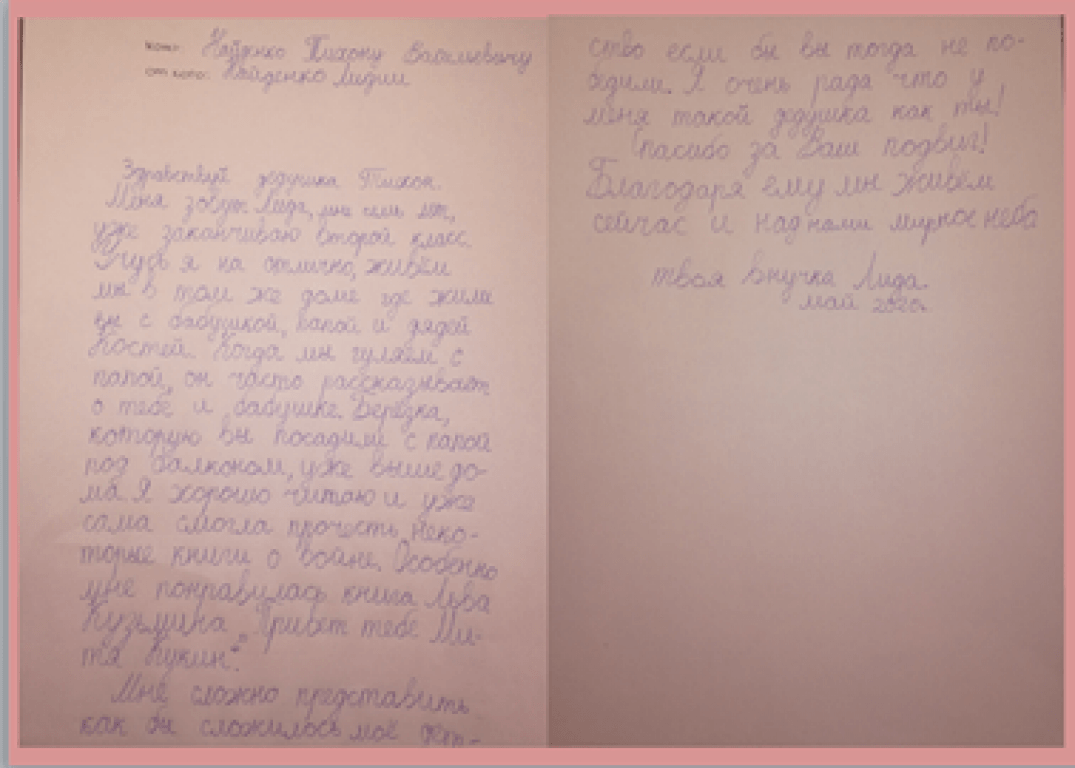 кому: Найденко Тихону Васильевичу
от кого: Найденко Лидии
Здравствуй дедушка Тихон.
Меня зовут Лида, мне семь лет,
уже заканчиваю второй класс.
Учусь я на отлично, живём
мы в том же доме где жили
вы с бабушкой, папой и дядей
Костей. Когда мы гуляем с
папой, он часто рассказывает
о тебе и бабушке. Берёзка,
которую вы посадили с папой
под балконом, уже выше до-
ма. Я хорошо читаю и уже
сама смогла прочесть неко-
торые книги о войне. Особенно
мне понравилась книга Льва
Кузьмина "Привет тебе Ми-
тя Кукин".
Мне сложно представить
как бы сложилось моё дет-
ство если бы вы тогда не по-
бедили. Я очень рада что у
меня такой дедушка как ты!
Спасибо за Ваш подвиг!
Благодаря ему мы живём
сейчас и над нами мирное небо
твоя внучка Лида.
май 2020г.